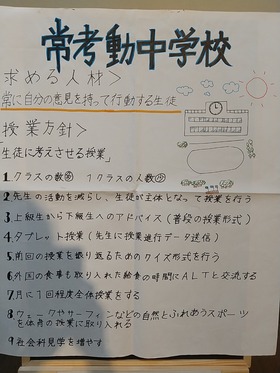 常考動中学校
求める人材>
常に自分の意見を持って行動する生徒
授業方針>
「生徒に考えさせる授業」
1 クラスの数㊛ 1クラスの人数㊙
2 先生の活動を減らし、生徒が主体となって授業を行う
3 上級生から下級生へのアドバイス(普段の授業形式)
4 タブレット授業(先生に授業進行データ送信)
5 前回の授業を振り返るためのクイズ形式を行う
6 外国の食事も取り入れた給食の時間にALTと交流する
7 月に1回程度全体授業をする
8 ウェークやサーフィンなどの自然とふれあうスポーツ
を体育の授業に取り入れる
9 社会科見学を増やす